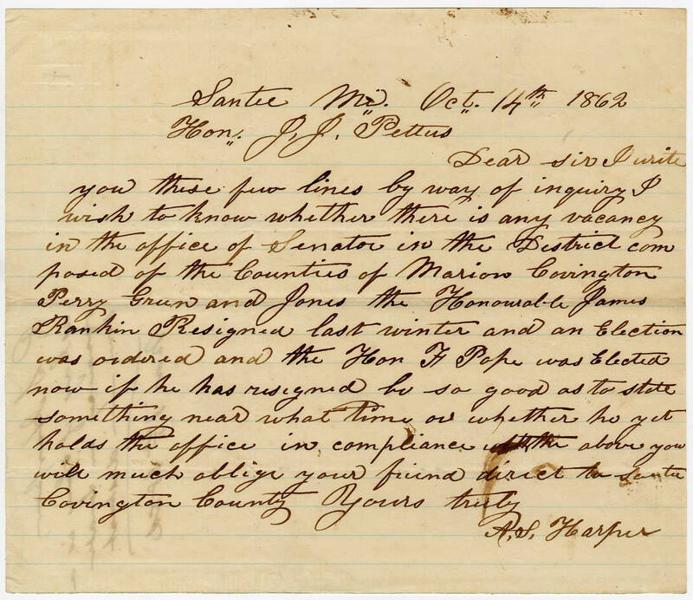 Santee Mi. Oct. 14th 1862
Hon. J. J. Pettus
Dear sir I write
you these few lines by way of inquiry I
wish to know whether there is any vacancy
in the office of Senator in the District com
posed of the Counties of Marion Covington
Perry Green and Jones the Honourable James
Rankin Resigned last winter and an Election
was ordered and the Hon F Pope was Elected
now if he has resigned be so good as to state
something near what time or whether he yet
holds the office in compliance with the above you
will much oblige your friend direct to Santee
Covington County Yours truly
A. S. Harper